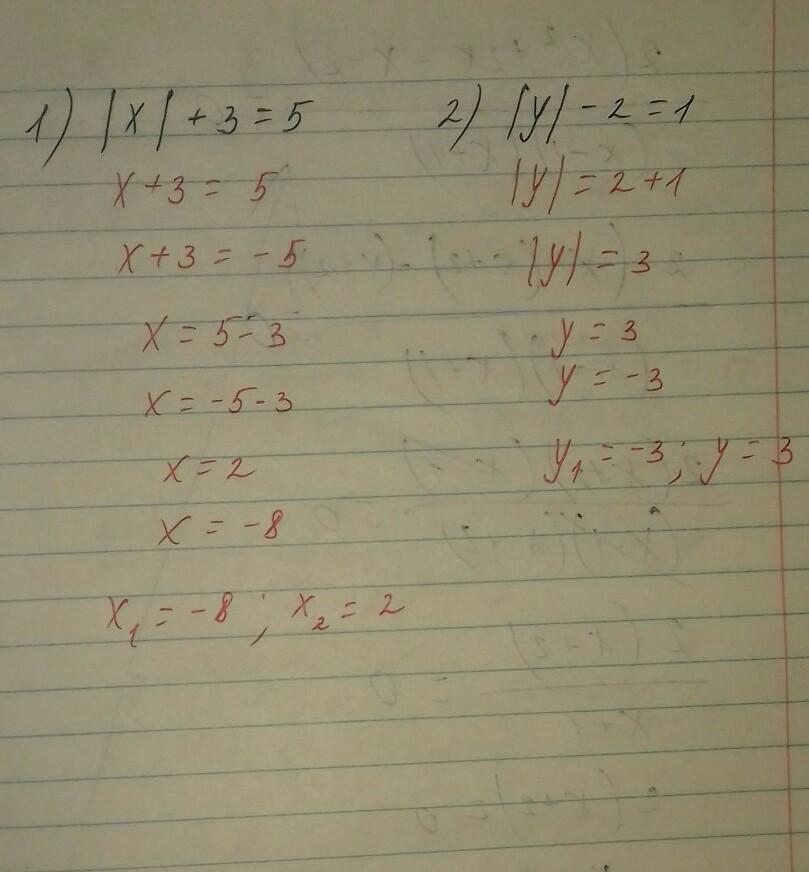 1) |x| + 3 = 5
x + 3 = 5
x + 3 = -5
x = 5 - 3
x = -5 - 3
x = 2
x = -8
x₁ = -8 ; x₂ = 2
2) |y| - 2 = 1
|y| = 2 + 1
|y| = 3
y = 3
y = -3
y₁ = -3 ; y = 3